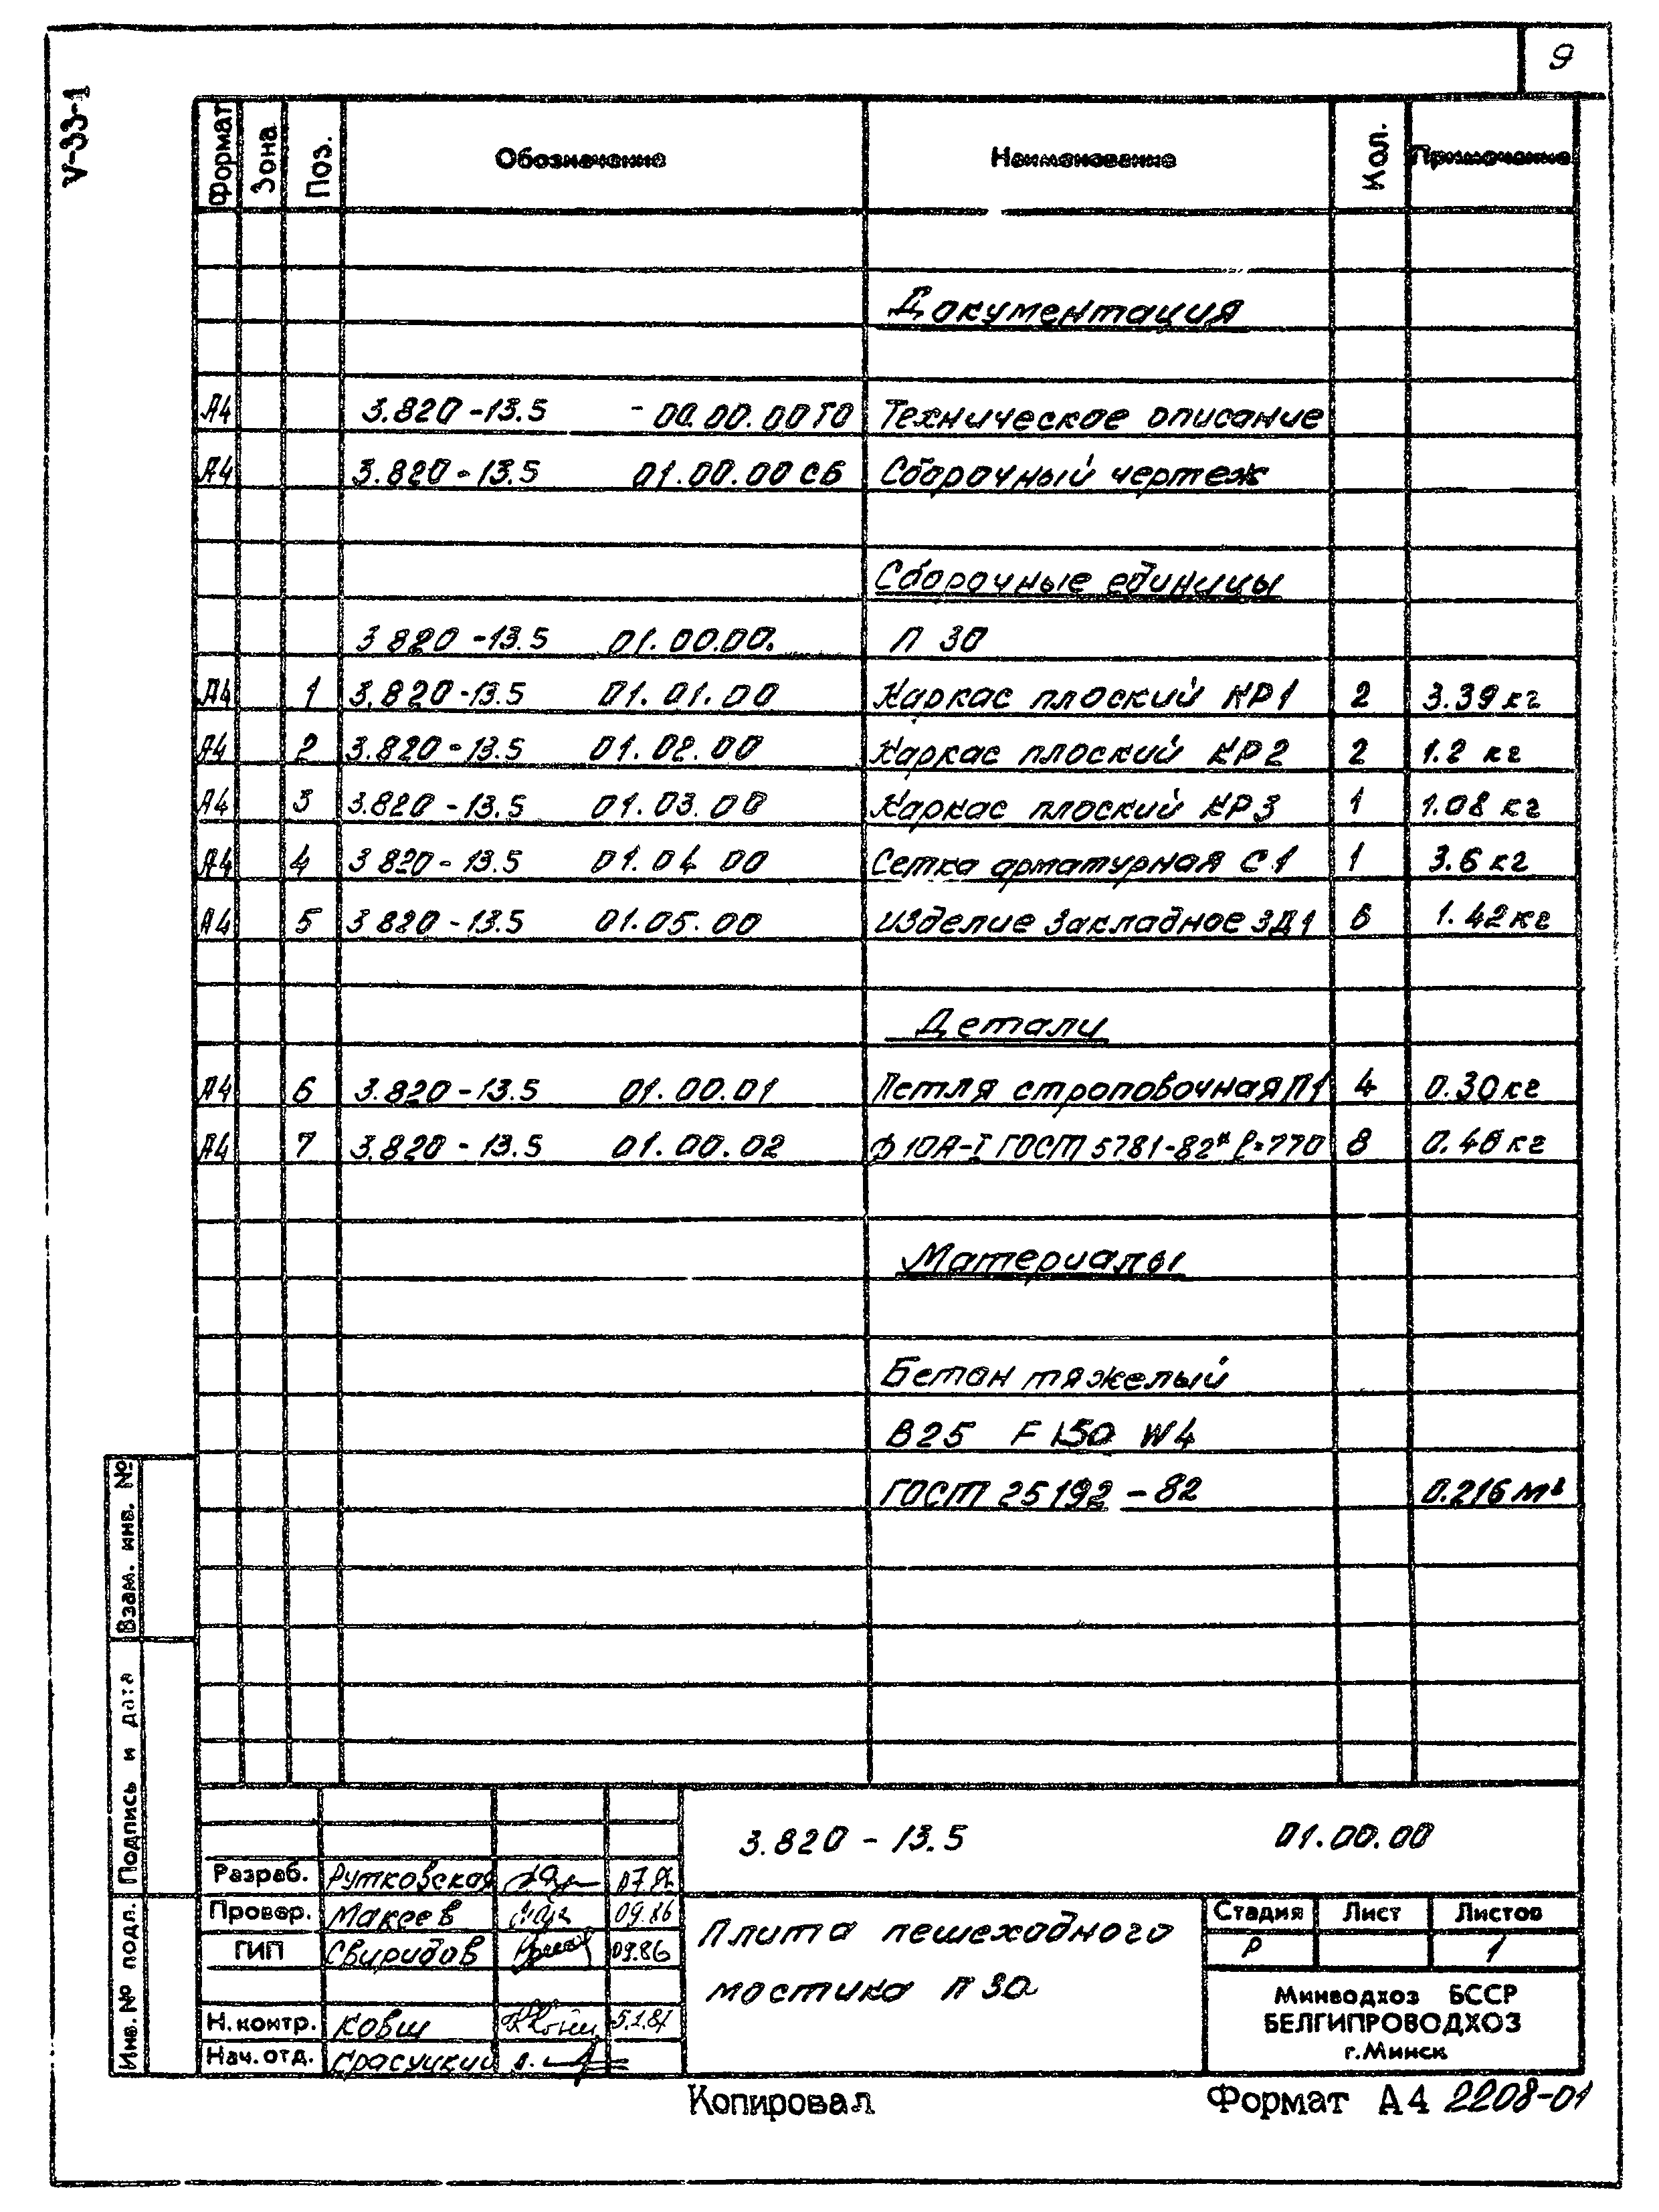 9
V-33-1
Формат Зона Поз. Обозначение Наименование Кол. Примечание
Документация
А4 3.820-13.5 -00.00.00 ТО Техническое описание
А4 3.820-13.5 01.00.00 СБ Сборочный чертеж
Сборочные единицы
3 820-13.5 01.00.00. П 30
А4 1 3.820-13.5 01.01.00 Каркас плоский КР1 2 3.39 кг
А4 2 3.820-13.5 01.02.00 Каркас плоский КР2 2 1.2 кг
А4 3 3.820-13.5 01.03.00 Каркас плоский КР3 1 1.08 кг
А4 4 3 820-13.5 01.04 00 Сетка арматурная С1 1 3.6 кг
А4 5 3 820-13.5 01.05.00 Изделие закладное ЗД1 6 1.42 кг
Детали
А4 6 3.820-13.5 01.00.01 Петля строповочная П1 4 0.30 кг
А4 7 3.820-13.5 01.00.02 Ф 10А-I ГОСТ 5781-82* ℓ=770 8 0.48 кг
Материалы
Бетон тяжелый
В25 F150 W4
ГОСТ 25192-82 0.216 м³
Взам. инв. №
Подпись и дата
Инв. № подл.
3.820-13.5 01.00.00
Разраб. Рутковская 07.86
Провер. Макеев 09.86
ГИП Свиридов 09.86
Н.контр. Ковш 5.1.87
Нач.отд. Красуцкий
Плита пешеходного
мостика П 30
Стадия Лист Листов
Р 1
Минводхоз БССР
БЕЛГИПРОВОДХОЗ
г.Минск
Копировал Формат А4 2208-01